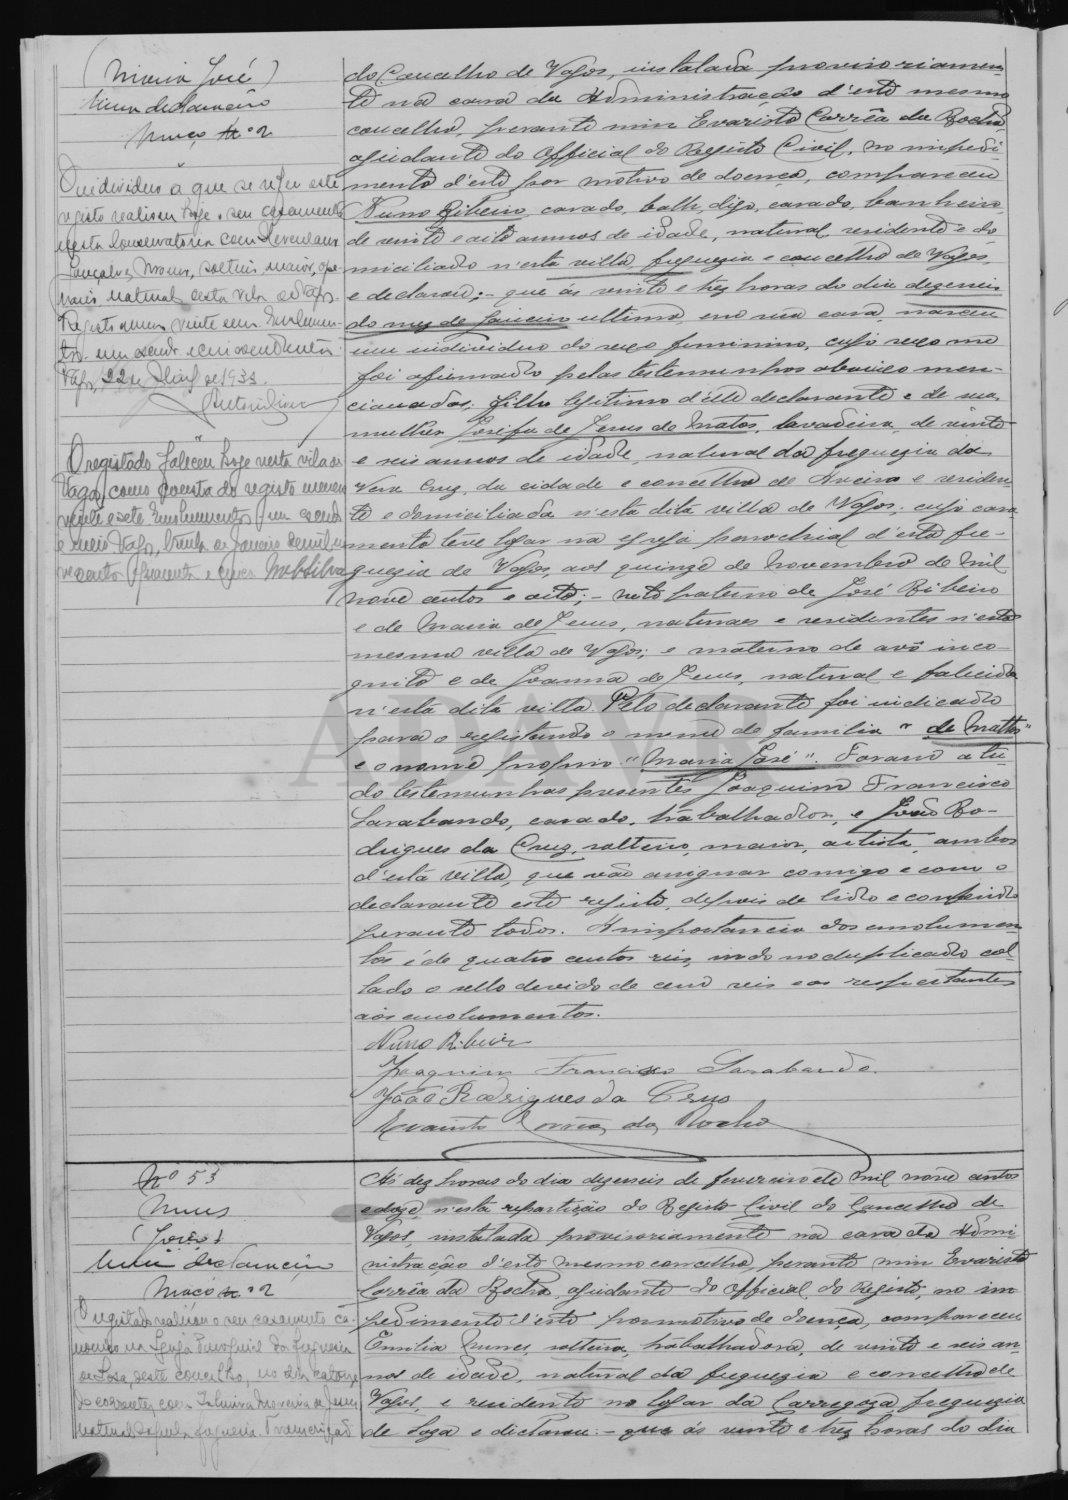 (Maria José)
Uma declaração
Maço Nº 2
O individuo a que se refere este
registo realisou hoje o seu casamento
nesta Conservatoria com Herculano
Gonçalves, solteiro, maior,
natural desta vila de Vagos.
Registo numero vinte e um. Emolumen-
tos um escudo e cincoenta
Vagos, 22 de de 1933.
O registado faleceu hoje nesta vila de
Vagos como consta do registo numero
vinte e sete Emolumentos um escudo
e meio Vagos, trinta de Janeiro de mil
novecentos e quarenta e cinco
do Concelho de Vagos, instalada provisoriamen-
te na casa da Administração d'este mesmo
concelho, perante mim Evaristo Corrêa da Rocha,
ajudante do Official do Registo Civil, no impedi-
mento d'este por motivo de doença, compareceu
Nuno Ribeiro, casado, digo, casado, banheiro,
de vinte e oito annos de idade, natural, residente e do
miciliado n'esta villa, freguezia e concelho de Vagos,
e declarou: - que ás vinte e trez horas do dia dezeseis
do mez de Janeiro ultimo, em sua casa, nasceu
um individuo do sexo feminino, cujo sexo me
foi afirmado pelas testemunhas abaixo men-
cionadas, filho legitimo d'este declarante e de sua
mulher Josefa de Jesus de Matos, lavadeira, de vinte
e seis annos de idade, natural da freguezia da
Vera Cruz, da cidade e concelho de Aveiro e residen-
te e domiciliada n'esta dita villa de Vagos; cujo casa-
mento teve logar na egreja parochial d'esta fre-
guezia de Vagos, aos quinze de Novembro de mil
nove centos e oito; - neto paterno de José Ribeiro
e de Maria de Jesus, naturaes e residentes n'esta
mesma villa de Vagos; e materno de avô inco-
gnito e de Joanna de Jesus, natural e falecida
n'esta dita villa. Pelo declarante foi indicado
para o registando o nome de familia "de Mattos"
e o nome proprio "Maria José". Foram a tu-
do testemunhas presentes Joaquim Francisco
Sarabando, casado, trabalhador, e João Ro-
drigues da Cruz, solteiro, maior, artista, ambos
d'esta villa, que vão assignar comigo e com o
declarante este registo, depois de lido e conferido
perante todos. A importancia dos emolumen-
tos é de quatro centos reis, indo no duplicado col-
lado o sello devido de cem reis e os respeitantes
aos emolumentos.
Nuno Ribeiro
Joaquim Francisco Sarabando.
João Rodrigues da Crus
Evaristo Corrêa da Rocha
Nº 53
Nunes
(José)
Uma declaração
Maço Nº 2
O registado realisou o seu casamento ca-
nonico na Igreja Paroquial da freguesia
de Sosa, deste concelho, no dia catorze
do corrente, com de Jesus
natural daquela freguesia. Transcrição
Ás dez horas do dia dezeseis de fevereiro de mil nove centos
e doze, n'esta repartição do Registo Civil do Concelho de
Vagos, instalada provisoriamente na casa da Admi
nistração d'este mesmo concelho, perante mim Evaristo
Corrêa da Rocha, ajudante do Official do Registo, no im
pedimento d'este por motivo de doença, compareceu
Emilia Nunes, solteira, trabalhadora, de vinte e seis an-
nos de idade, natural da freguezia e concelho de
Vagos, e residente no logar da Carregoza, freguezia
de Soza e declarou: - que ás vinte e trez horas do dia
ADAVR